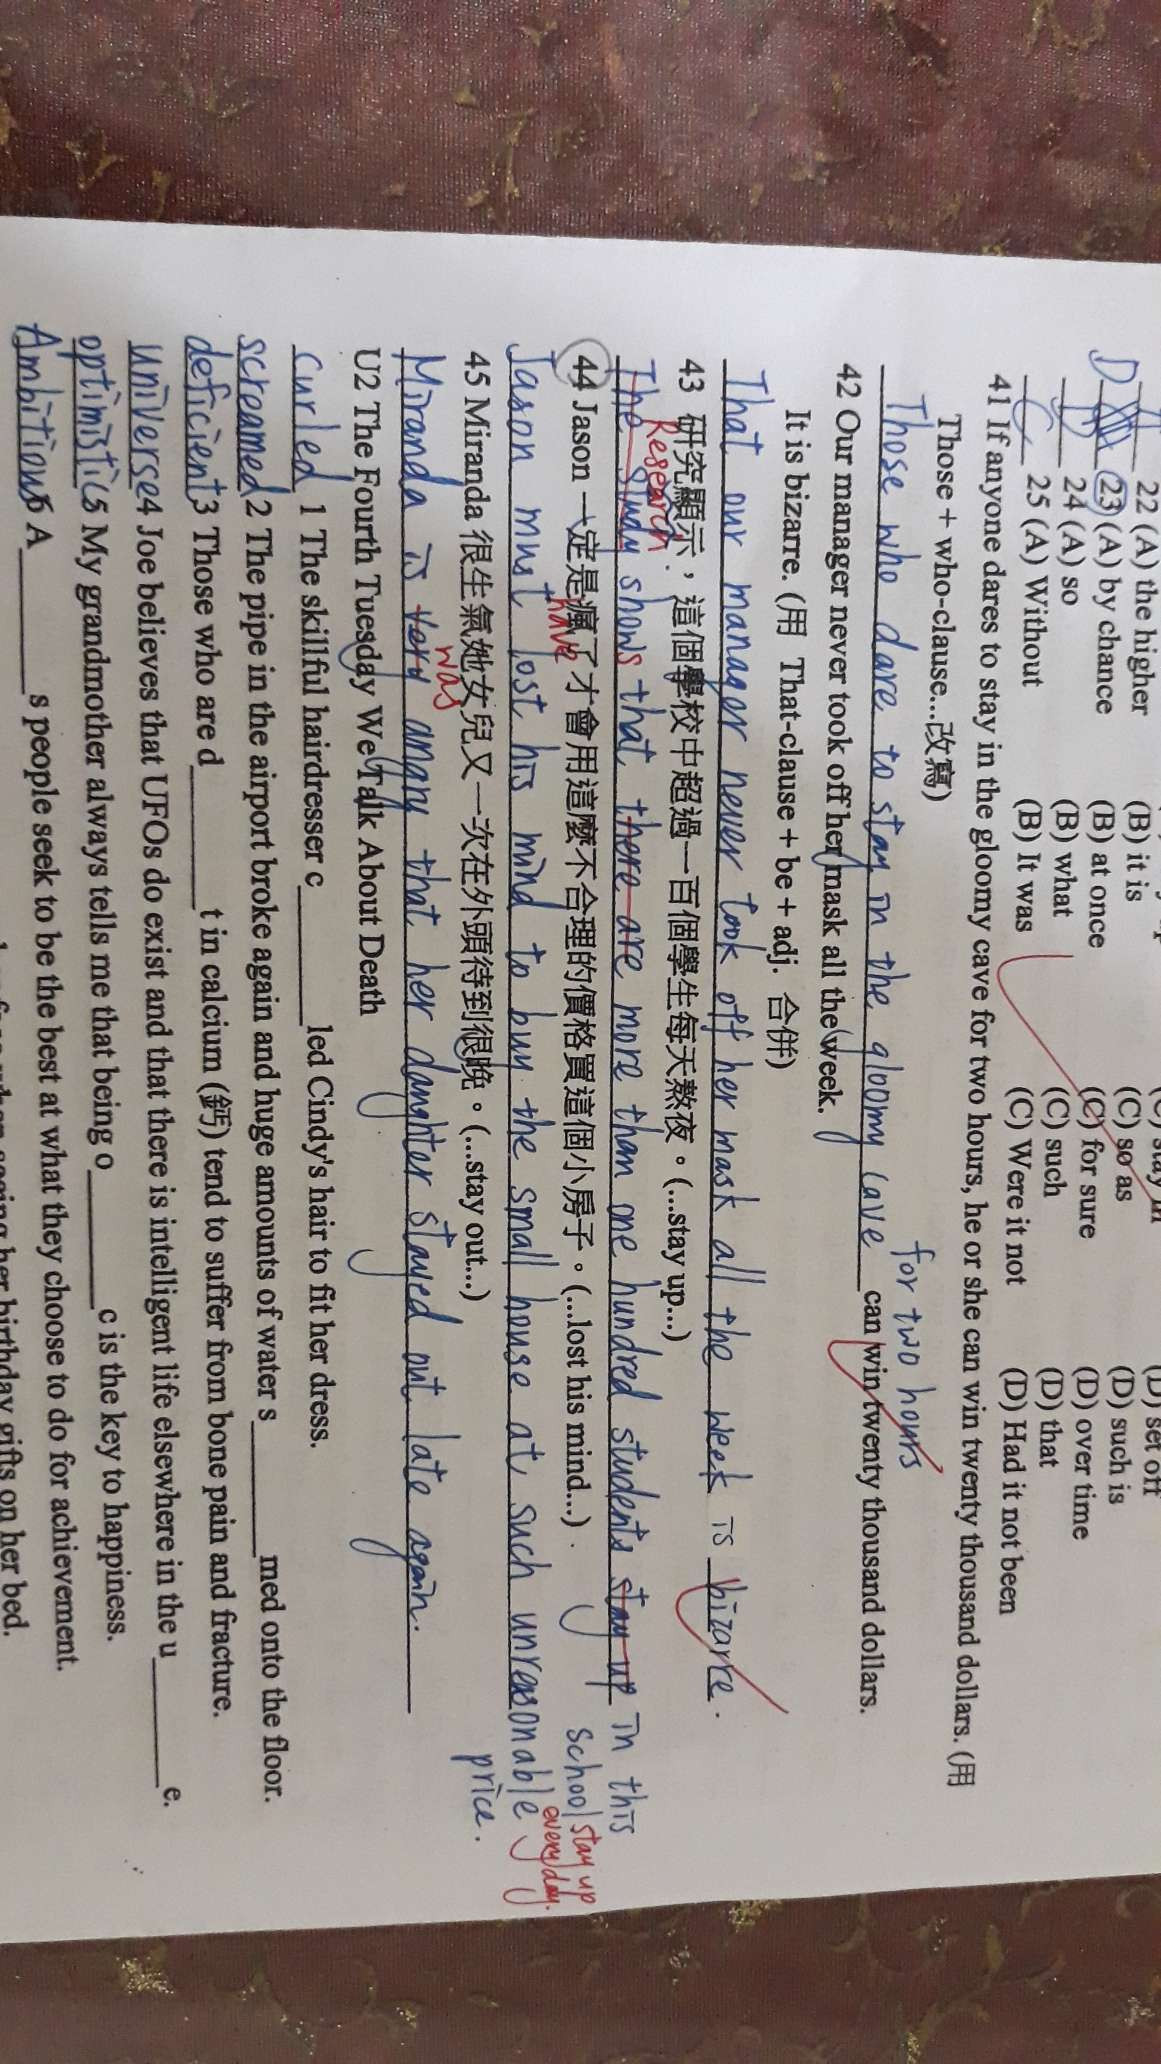 22 (A) the higher (B) it is (C) so as (D) such is
D 23 (A) by chance (B) at once (C) for sure (D) over time
24 (A) so (B) what (C) such (D) that
25 (A) Without (B) It was (C) Were it not (D) Had it not been
41 If anyone dares to stay in the gloomy cave for two hours, he or she can win twenty thousand dollars. (用
Those + who-clause...改寫)
for two hours
Those who dare to stay in the gloomy cave can win twenty thousand dollars.
42 Our manager never took off her mask all the week.
It is bizarre. (用 That-clause + be + adj. 合併)
That our manager never took off her mask all the week is bizarre.
43 研究顯示，這個學校中超過一百個學生每天熬夜。(...stay up...)
Research
The study shows that there are more than one hundred students stay up in this
school stay up
every day.
44 Jason 一定是瘋了才會用這麼不合理的價格買這個小房子。(...lost his mind...)
have
Jason must lost his mind to buy the small house at such unreasonable
price.
45 Miranda 很生氣她女兒又一次在外頭待到很晚。(...stay out...)
was
Miranda is very angry that her daughter stayed out late again.
U2 The Fourth Tuesday We Talk About Death
curled 1 The skillful hairdresser c________led Cindy's hair to fit her dress.
screamed 2 The pipe in the airport broke again and huge amounts of water s________med onto the floor.
deficient 3 Those who are d________t in calcium (鈣) tend to suffer from bone pain and fracture.
universe 4 Joe believes that UFOs do exist and that there is intelligent life elsewhere in the u________e.
optimistic 5 My grandmother always tells me that being o________c is the key to happiness.
Ambitious 6 A________s people seek to be the best at what they choose to do for achievement.
her birthday gifts on her bed.